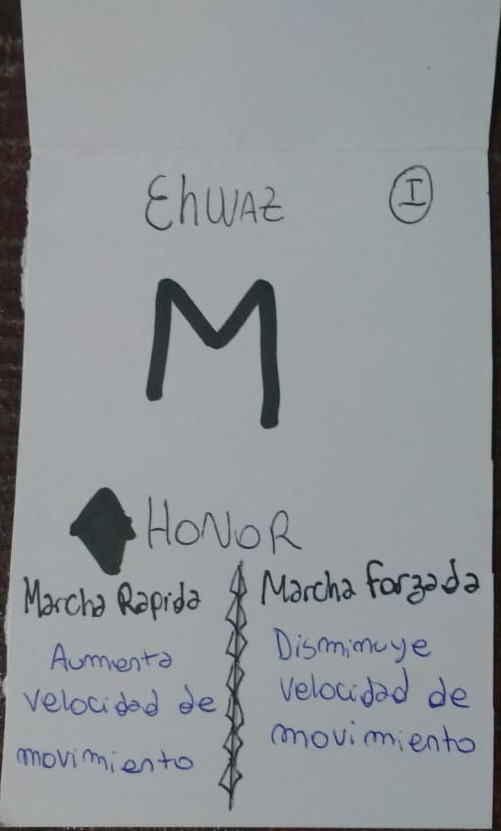 Ehwaz
I
M
HONOR
Marcha Rapida
Aumenta
velocidad de
movimiento
Marcha forzada
Disminuye
velocidad de
movimiento